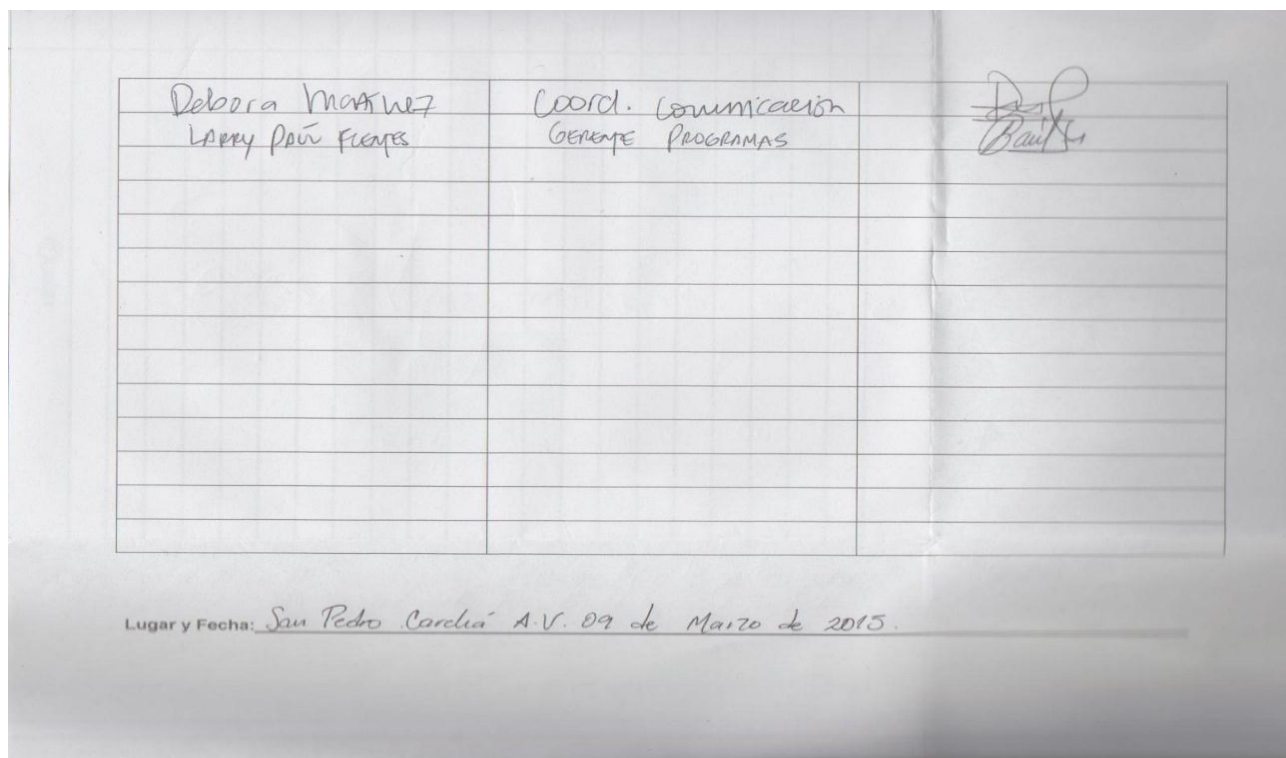 Debora Martinez Coord. Comunicación
LARRY PAÚL FUENTES GERENTE PROGRAMAS
Lugar y Fecha: San Pedro Carchá A.V. 09 de Marzo de 2015.